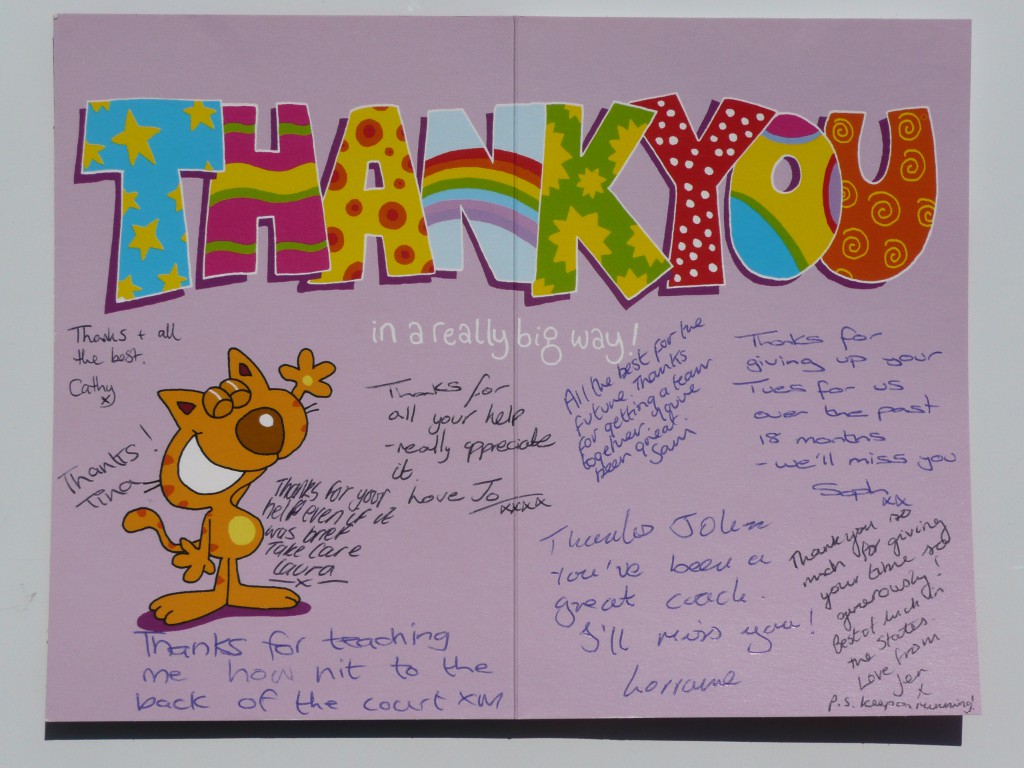 THANK YOU
in a really big way!
Thanks + all
the best.
Cathy
x
Thanks!
Tina
Thanks for
all your help
- really appreciate
it
Love Jo
xxxx
Thanks for your
help even if it
was brief
Take Care
Laura
x
Thanks for teaching
me how nit to the
back of the court XM
All the best for the
future. Thanks
for getting a team
together. You've
been great.
Sam
Thanks for
giving up your
Tues for us
over the past
18 months
- we'll miss you
Soph
xx
Thanks John
You've been a
great coach.
I'll miss you!
Lorraine
Thank you so
much for giving
your time so
generously!
Best of luck in
the States
Love from
Jen
x
P.S. keep on running!